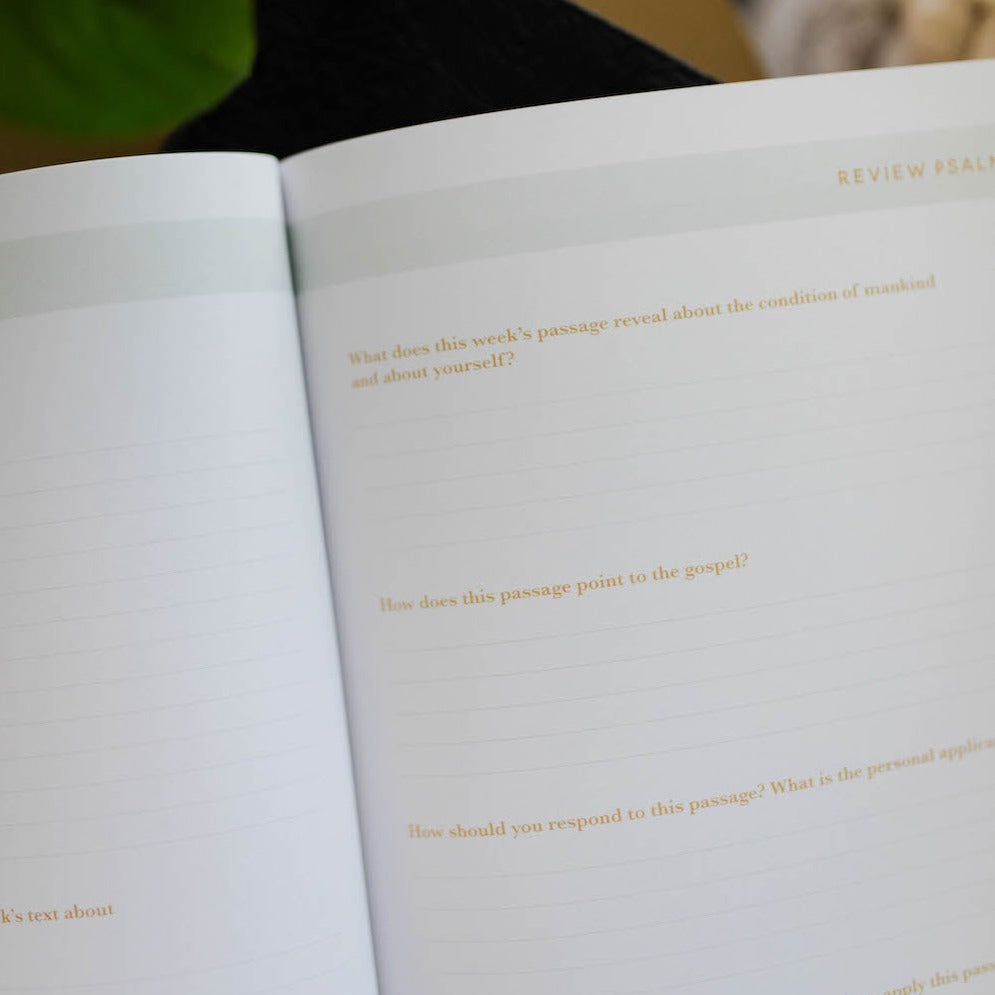 k's text about
REVIEW PSALM
What does this week's passage reveal about the condition of mankind
and about yourself?
How does this passage point to the gospel?
How should you respond to this passage? What is the personal applica
apply this pass